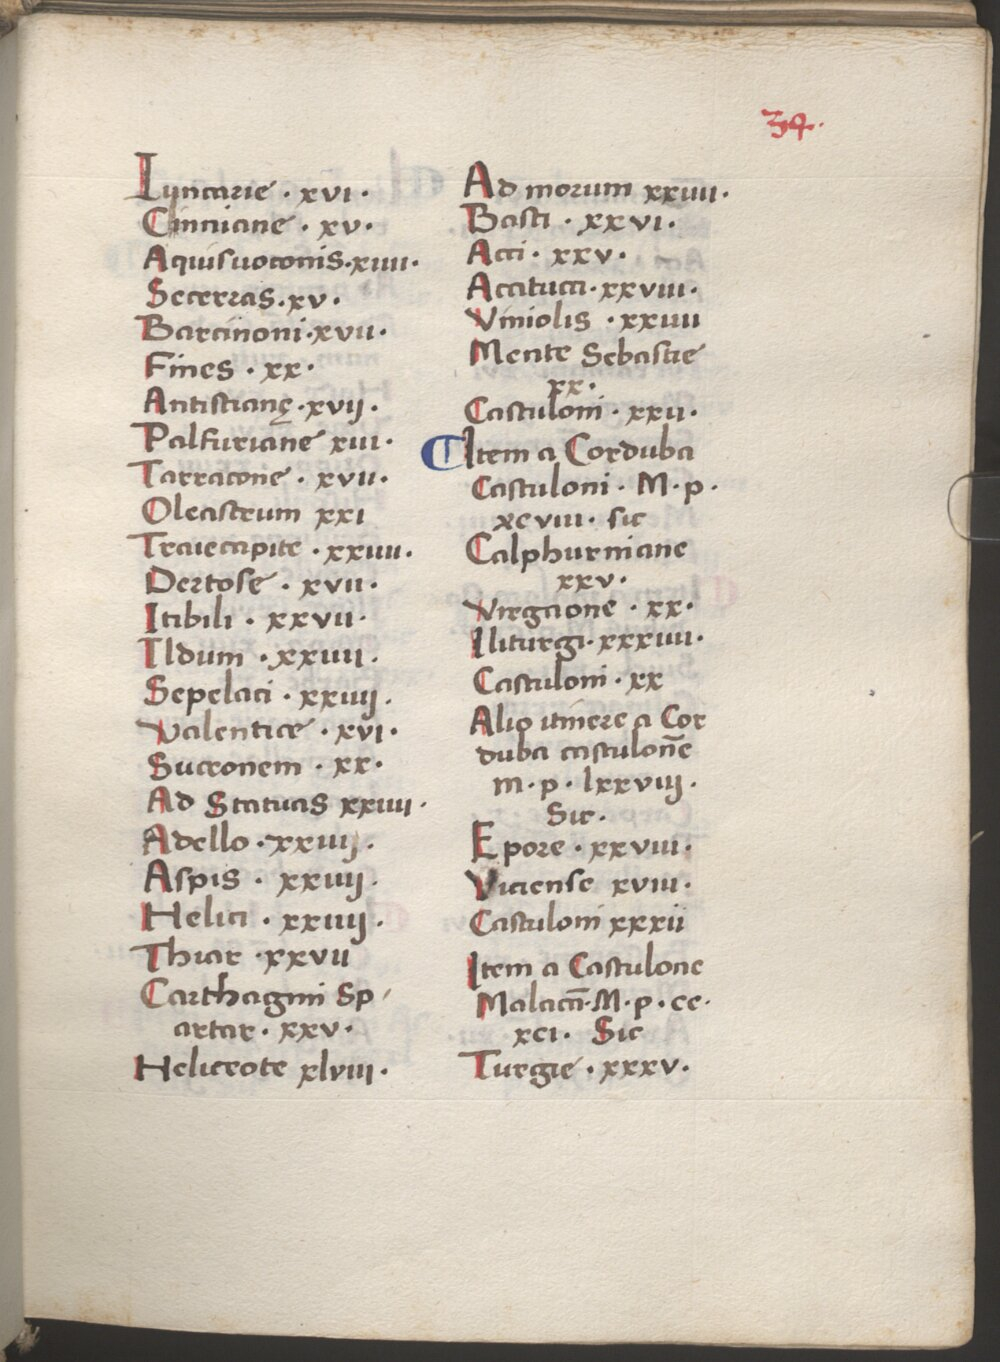 34.
Iuncarie · xvi ·
Cinniane · xv ·
Aquisuoconis · xiiii ·
Secerras · xv ·
Barcinoni · xvii ·
Fines · xx ·
Antistianę · xvij ·
Palfuriane xiii ·
Tarracone · xvii ·
Oleastrum xxi
Traiecapite · xxiiii ·
Dertose · xvii ·
Itibili · xxvii ·
Ildum · xxiiii ·
Sepelaci · xxiiij ·
Valentice · xvi ·
Sucronem · xx ·
Ad Statuas xxiiii ·
Adello · xxiiij ·
Aspis · xxiiij ·
Helici · xxiiij ·
Thiar · xxvii
Carthagini Sp
artar · xxv ·
Helicrote xlviii ·
Ad morum xxiiii ·
Basti · xxvi ·
Acci · xxv ·
Accitucci · xxviii ·
Viniolis · xxiiii
Mente Sebastie
xx ·
Castuloni · xxii ·
Item a Corduba
Castuloni · M · p ·
xcviii · sic
Calphurniane
xxv ·
Virgaone · xx ·
Iliturgi · xxxiiii ·
Castuloni · xx
Alio itinere a Cor
duba castulonē
m · p · lxxviij ·
Sic ·
Epore · xxviii ·
Viciense xviii ·
Castuloni xxxii
Item a Castulone
Malacā · M · p · cc ·
xci · Sic
Turgie · xxxv ·